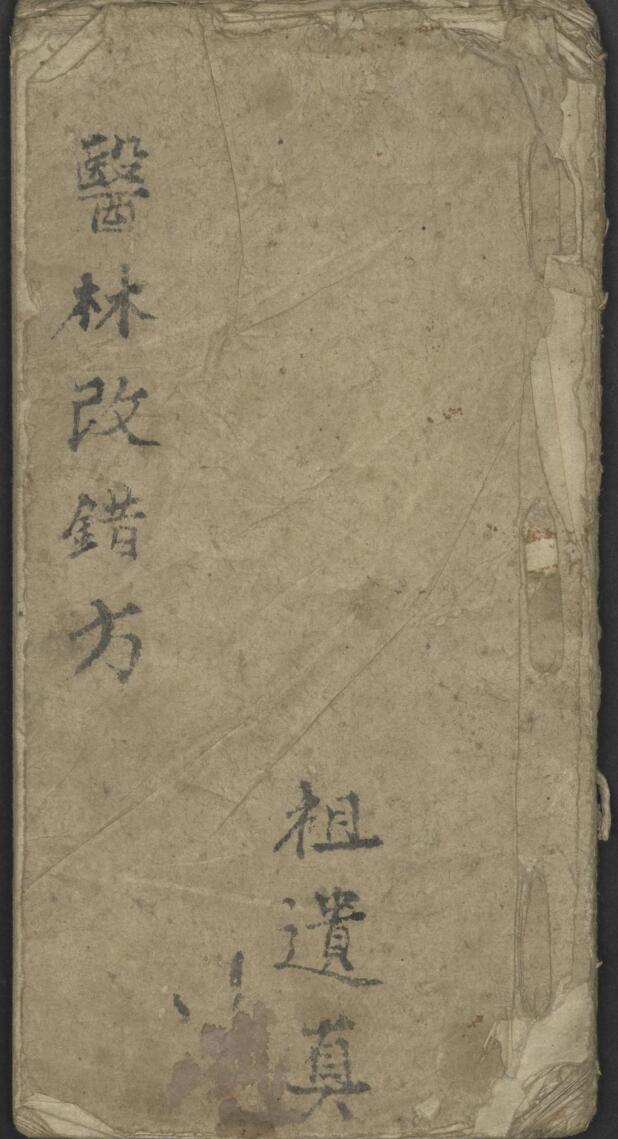 醫林改錯方
祖遺真